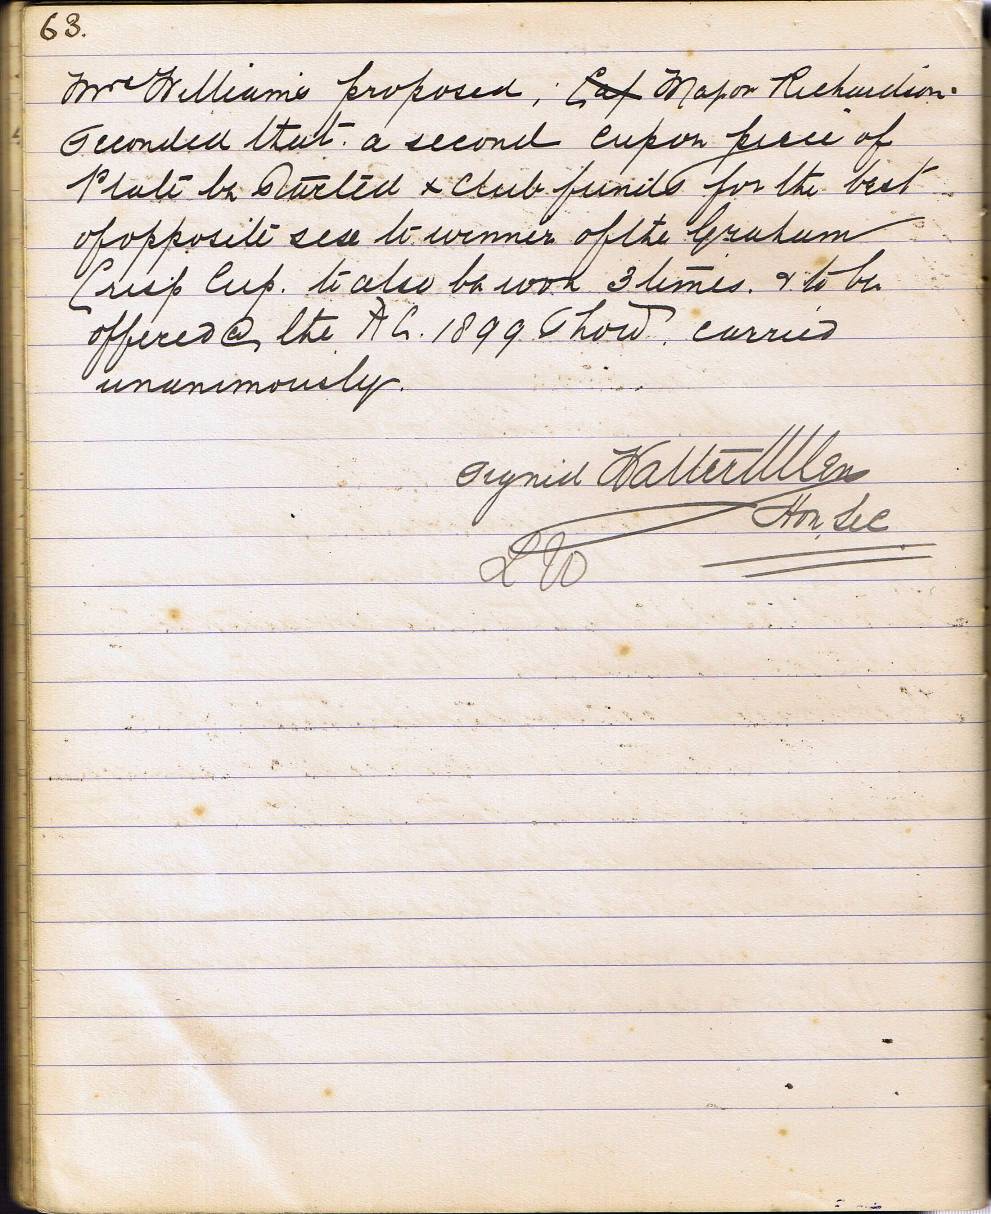 63.
Mrs Williams proposed, Cap Major Richardson
seconded that a second cup or piece of
Plate be started & club funds for the best
of opposite sex to winner of the Graham
Crisp Cup. to also be won 3 times. & to be
offered @ the A C. 1899 Show. carried
unanimously.
Signed Walter
Hon. Sec